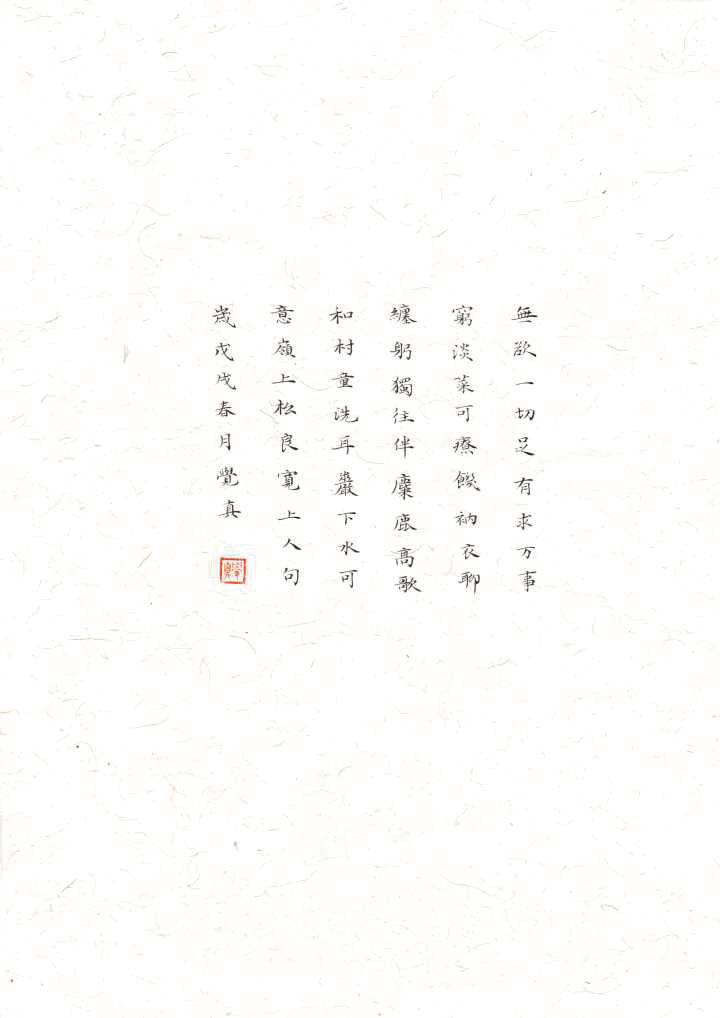 無欲一切足有求万事
窮淡菜可療饑衲衣聊
纏躬獨往伴麋鹿高歌
和村童洗耳巖下水可
意嶺上松良寬上人句
歲戊戌春月覺真